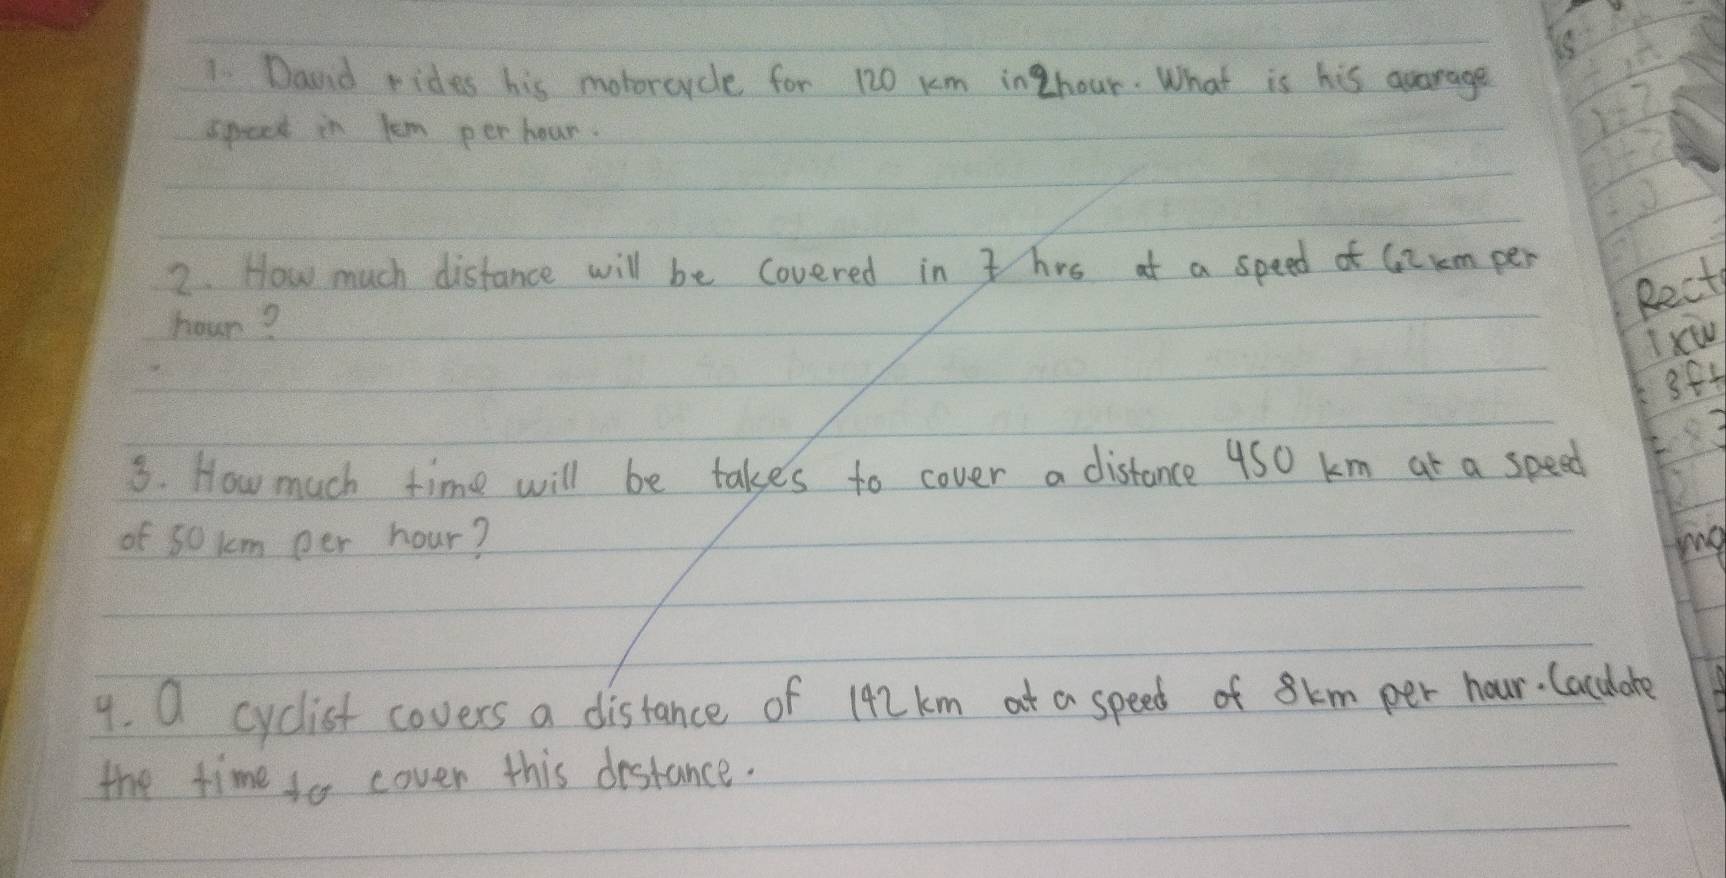 1. David rides his motorcycle for 120 km in 2 hour. What is his avarage
speed in km per hour.
2. How much distance will be covered in 7 hrs at a speed of 62 km per
hour?
3. How much time will be takes to cover a distance 450 km at a speed
of 50 km per hour?
4. A cyclist covers a distance of 142 km at a speed of 8 km per hour. Caculate
the time to cover this distance.
Rect
lxw
3ft